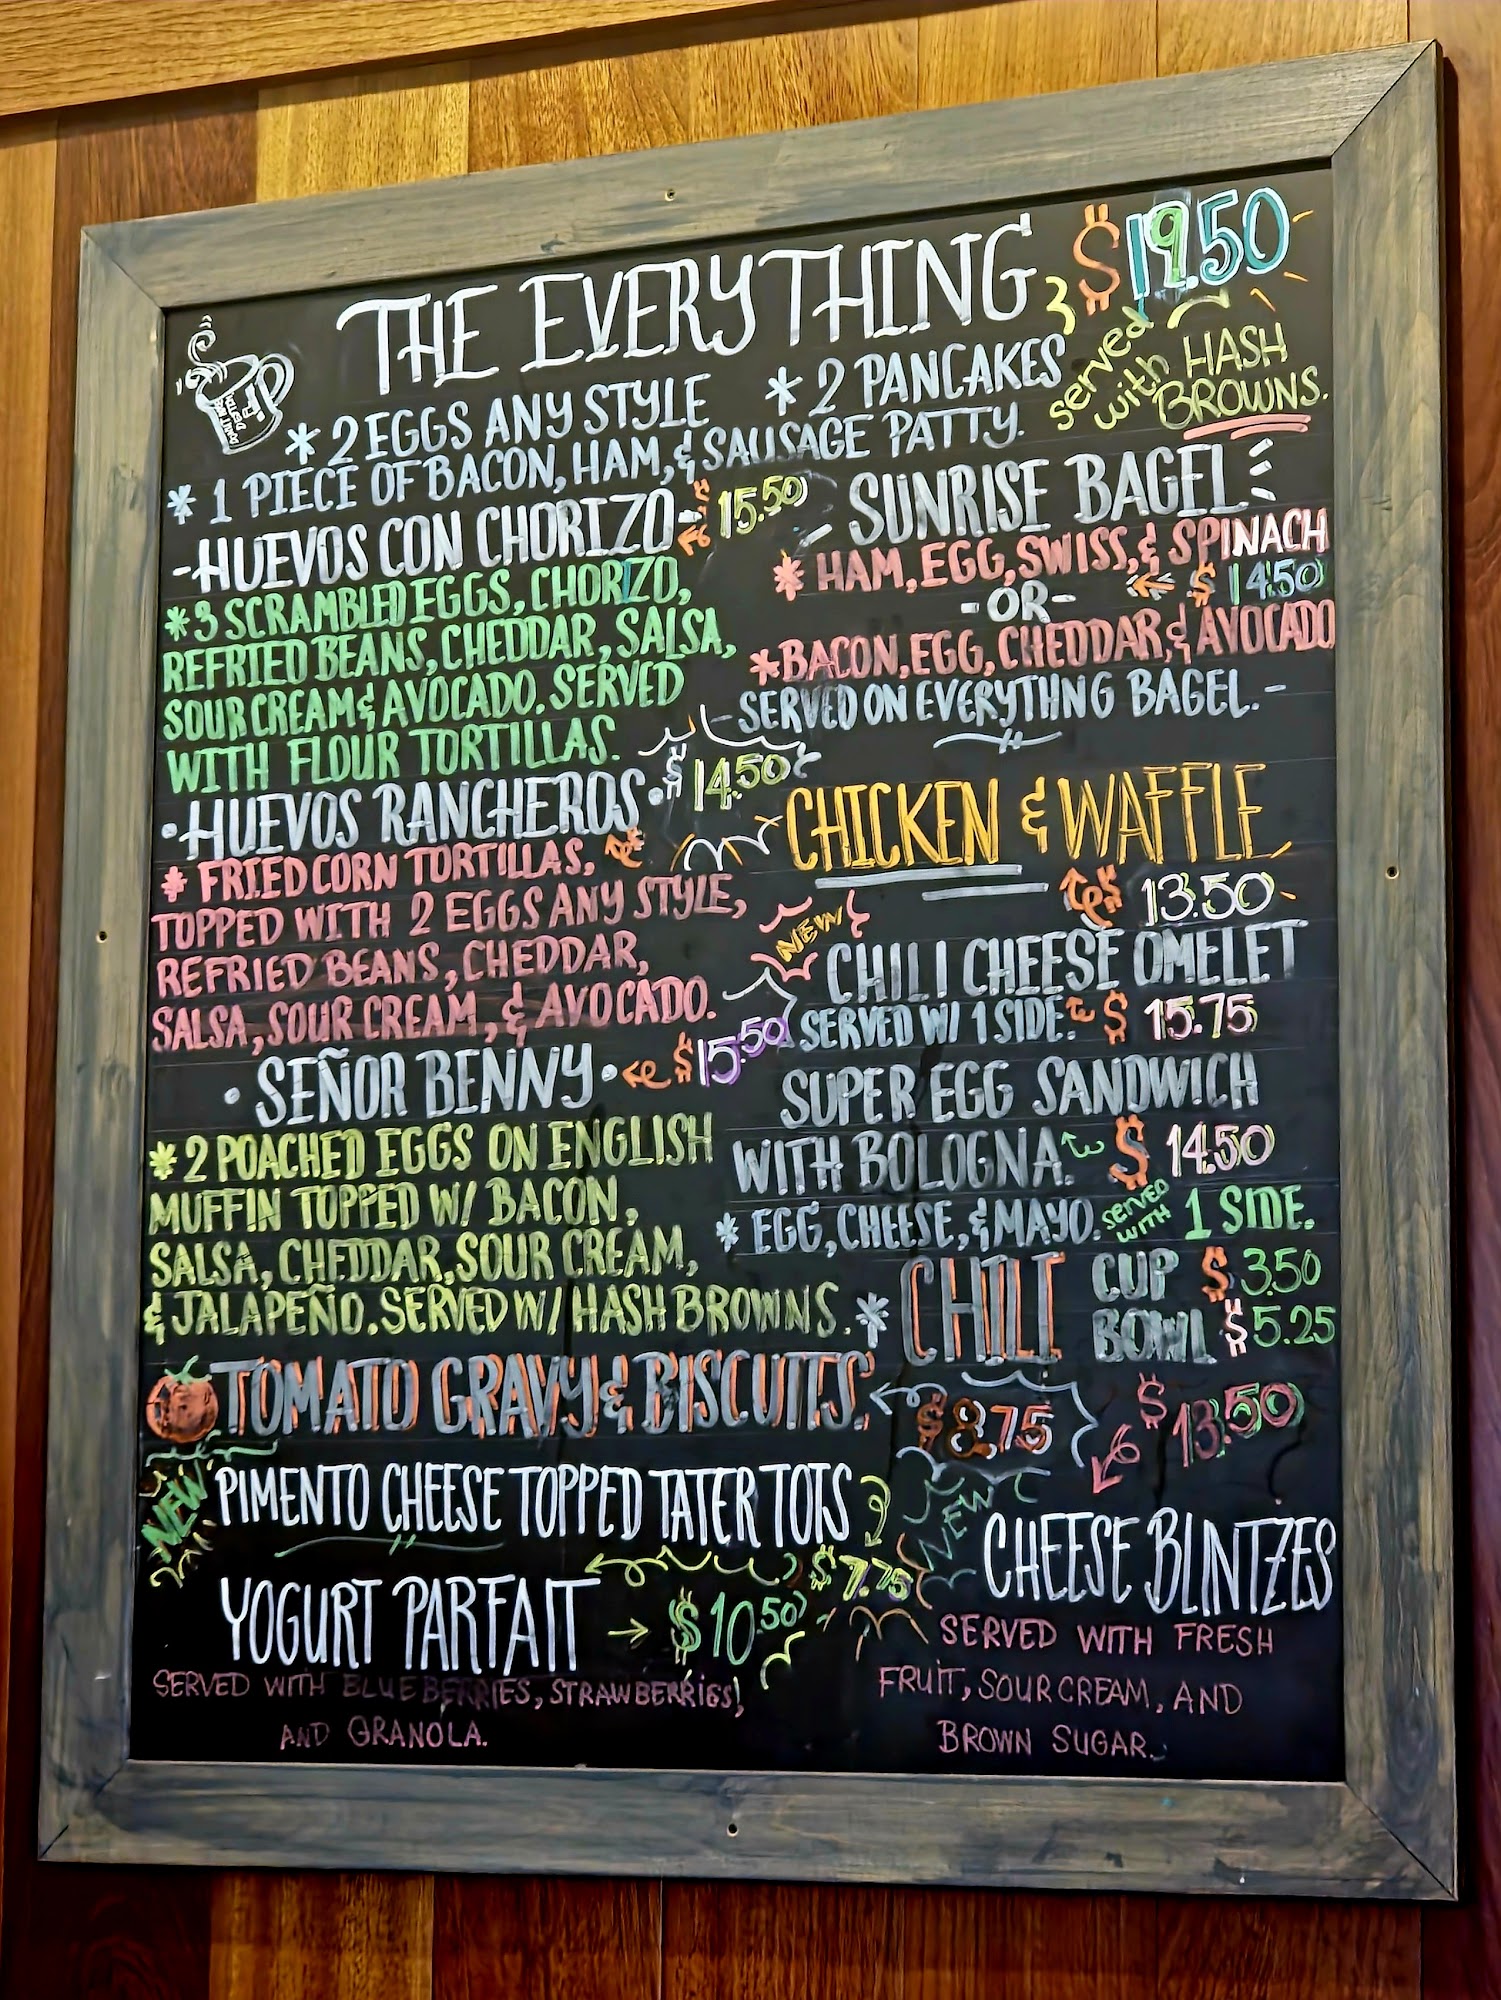 THE EVERYTHING $19.50
* 2 EGGS ANY STYLE * 2 PANCAKES
* 1 PIECE OF BACON, HAM, & SAUSAGE PATTY.
served with HASH
BROWNS.
-HUEVOS CON CHORIZO- $15.50
*3 SCRAMBLED EGGS, CHORIZO,
REFRIED BEANS, CHEDDAR, SALSA,
SOUR CREAM & AVOCADO. SERVED
WITH FLOUR TORTILLAS.
·HUEVOS RANCHEROS· $14.50
* FRIED CORN TORTILLAS,
TOPPED WITH 2 EGGS ANY STYLE,
REFRIED BEANS, CHEDDAR,
SALSA, SOUR CREAM, & AVOCADO.
·SEÑOR BENNY· $15.50
*2 POACHED EGGS ON ENGLISH
MUFFIN TOPPED W/ BACON,
SALSA, CHEDDAR, SOUR CREAM,
& JALAPEÑO. SERVED W/ HASH BROWNS.
SUNRISE BAGEL
* HAM, EGG, SWISS, & SPINACH
-OR- $14.50
*BACON, EGG, CHEDDAR, & AVOCADO
-SERVED ON EVERYTHNG BAGEL.-
CHICKEN & WAFFLE
13.50
NEW
CHILI CHEESE OMELET
SERVED W/ 1 SIDE. $15.75
SUPER EGG SANDWICH
WITH BOLOGNA. $14.50
* EGG, CHEESE, & MAYO. SERVED WITH 1 SIDE.
* CHILI CUP $3.50
BOWL $5.25
TOMATO GRAVY & BISCUITS. $8.75
NEW PIMENTO CHEESE TOPPED TATER TOTS
$7.75
YOGURT PARFAIT → $10.50
SERVED WITH BLUEBERRIES, STRAWBERRIES,
AND GRANOLA.
$13.50
NEW
CHEESE BLINTZES
SERVED WITH FRESH
FRUIT, SOUR CREAM, AND
BROWN SUGAR.